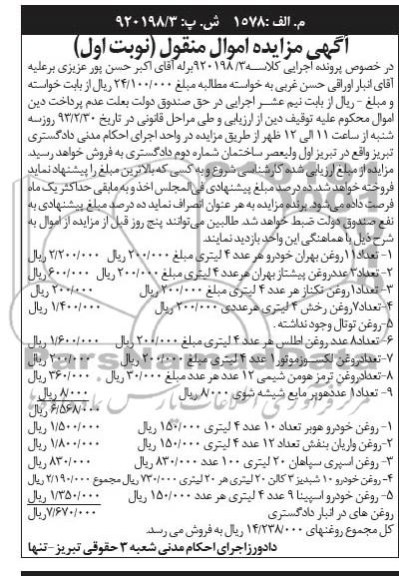 م. الف: ۱۵۷۸ ش. پ: ۹۲۰۱۹۸/۳
آگهی مزایده اموال منقول (نوبت اول)
در خصوص پرونده اجرایی کلاسه ۹۲۰۱۹۸/۳ برله آقای اکبر حسن پور عزیزی برعلیه
آقای انبار اوراقی حسن غربی به خواسته مطالبه مبلغ ۲۴/۱۰۰/۰۰۰ ریال از بابت خواسته
و مبلغ - ریال از بابت نیم عشر اجرایی در حق صندوق دولت بعلت عدم پرداخت دین
اموال محکوم علیه توقیف دین از ارزیابی و طی مراحل قانونی در تاریخ ۹۳/۲/۳۰ روز سه
شنبه از ساعت ۱۱ الی ۱۲ ظهر از طریق مزایده در واحد اجرای احکام مدنی دادگستری
تبریز واقع در تبریز اول ولیعصر ساختمان شماره دوم دادگستری به فروش خواهد رسید.
مزایده از مبلغ ارزیابی شده کارشناسی شروع و به کسی که بالاترین مبلغ را پیشنهاد نماید
فروخته خواهد شد. ده درصد مبلغ پیشنهادی فی المجلس اخذ و به مابقی حداکثر یک ماه
فرصت داده می شود. برنده مزایده به هر عنوان انصراف نماید ده درصد مبلغ پیشنهادی به
نفع صندوق دولت ضبط خواهد شد. طالبین می‌توانند پنج روز قبل از مزایده از اموال به
شرح ذیل با هماهنگی این واحد بازدید نمایند.
۱- تعداد ۱۱ روغن بهران خودرو هر عدد ۴ لیتری مبلغ ۲۰۰/۰۰۰ ریال ۲/۲۰۰/۰۰۰ ریال
۲- تعداد ۳ عدد روغن پیشتاز بهران هر عدد ۴ لیتری مبلغ ۲۰۰/۰۰۰ ریال ۶۰۰/۰۰۰ ریال
۳- تعداد ۱ روغن تکناز هر عدد ۴ لیتری مبلغ ۲۰۰/۰۰۰ ریال ۲۰۰/۰۰۰ ریال
۴- تعداد ۷ روغن رخش ۴ لیتری هر عددی ۲۰۰/۰۰۰ ریال ۱/۴۰۰/۰۰۰ ریال
۵- روغن توتال وجود نداشته.
۶- تعداد ۸ عدد روغن اطلس هر عدد ۴ لیتری مبلغ ۲۰۰/۰۰۰ ریال ۱/۶۰۰/۰۰۰ ریال
۷- تعداد روغن لکسوز موتور ۱ عدد ۴ لیتری مبلغ ۲۰۰/۰۰۰ ریال ۲۰۰/۰۰۰ ریال
۸- تعداد روغن ترمز هومن شیمی ۱۲ عدد هر عدد مبلغ ۳۰/۰۰۰ ریال ۳۶۰/۰۰۰ ریال
۹- تعداد ۱ عدد هوپر مایع شیشه شوی ۸۰۰۰ ریال ۸/۰۰۰ ریال
۶/۵۶۸/۰۰۰ ریال
۱- روغن خودرو هوبر تعداد ۱۰ عدد ۴ لیتری ۱۵۰/۰۰۰ ریال ۱/۵۰۰/۰۰۰ ریال
۲- روغن واریان بنفش تعداد ۱۲ عدد ۴ لیتری ۱۵۰/۰۰۰ ریال ۱/۸۰۰/۰۰۰ ریال
۳- روغن اسپری سپاهان ۲۰ لیتری ۱۰۰ عدد ۸۳۰/۰۰۰ ریال ۸۳۰/۰۰۰ ریال
۴- روغن خودرو ۱۰ شبدیز ۳ گالن ۲۰ لیتری هر ۲۰ لیتری ۷۳۰/۰۰۰ ریال مجموع ۲/۱۹۰/۰۰۰ ریال
۵- روغن خودرو اسپینا ۹ عدد ۴ لیتری هر عدد ۱۵۰/۰۰۰ ریال ۱/۳۵۰/۰۰۰ ریال
روغن های در انبار دادگستری ۷/۶۷۰/۰۰۰ ریال
کل مجموع روغنهای ۱۴/۲۳۸/۰۰۰ ریال به فروش می رسد.
دادورز اجرای احکام مدنی شعبه ۳ حقوقی تبریز - تنها